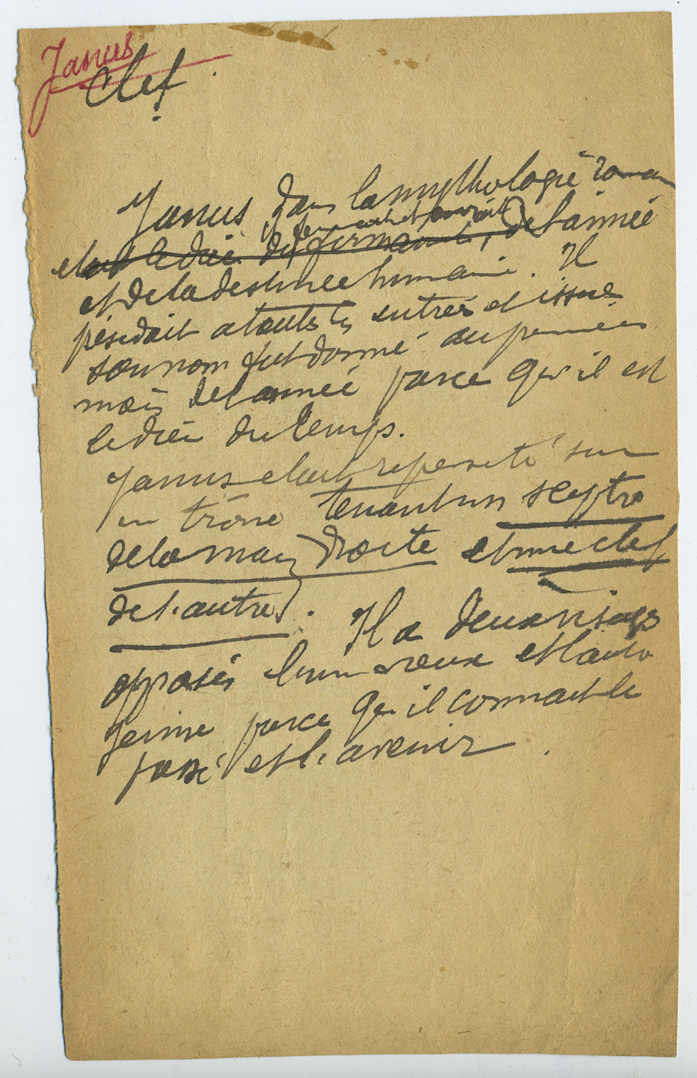 Janus
Clef.
Janus dans la mythologie romain
il fermait et ouvrait
etait le dieu du firmament, de l'année
et de la destinée humaine. Il
présidait a toute les entrées et issues
son nom fut donné au premier
mois de l'année parce qu'il est
le dieu du temps.
Janus etait représenté sur
un trône tenant un sceptre
de la main droite et une clef
de l'autre. Il a deux visages
opposés l'un vieux et l'autre
jeune parce qu'il connait le
passé et l'avenir.